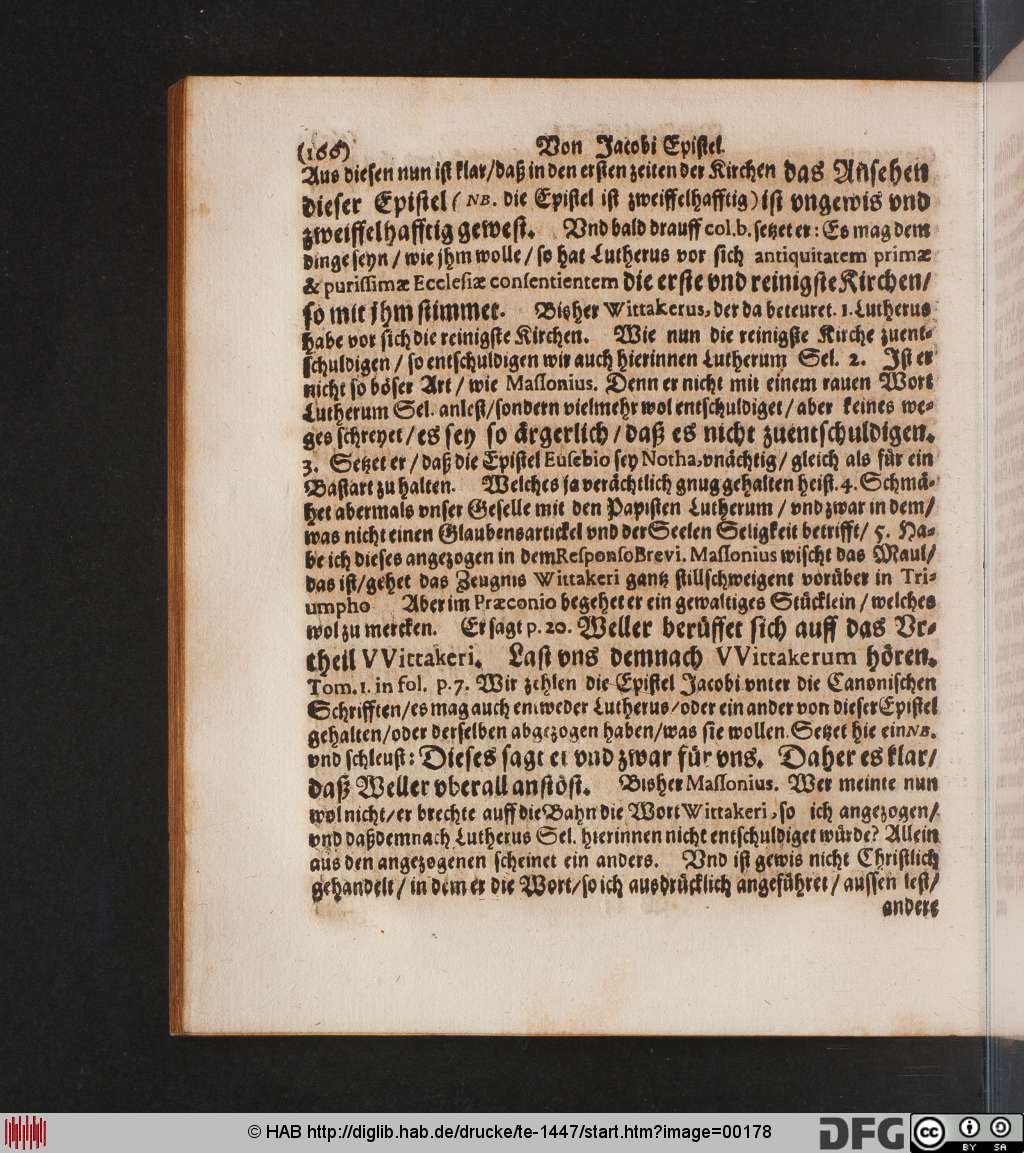 (166) Von Jacobi Epistel.
Aus diesen nun ist klar/daß in den ersten zeiten der Kirchen das Ansehen
dieser Epistel (NB. die Epistel ist zweiffelhafftig) ist vngewis vnd
zweiffelhafftig gewest. Vnd bald drauff col.b. setzet er: Es mag dem
dinge seyn/wie jhm wolle/so hat Lutherus vor sich antiquitatem primæ
& purissimæ Ecclesiæ consentientem die erste vnd reinigste Kirchen/
so mit jhm stimmet. Bisher Wittakerus, der da beteuret. 1. Lutherus
habe vor sich die reinigste Kirchen. Wie nun die reinigste Kirche zuent-
schuldigen/so entschuldigen wir auch hierinnen Lutherum Sel. 2. Ist er
nicht so böser Art/wie Massonius. Denn er nicht mit einem rauen Wort
Lutherum Sel. anlest/sondern vielmehr wol entschuldiget/aber keines we-
ges schreyet/es sey so ärgerlich/daß es nicht zuentschuldigen.
3. Setzet er/daß die Epistel Eusebio sey Notha, vnächtig/gleich als für ein
Bastart zu halten. Welches ja verächtlich gnug gehalten heist. 4. Schmä-
het abermals vnser Geselle mit den Papisten Lutherum/vnd zwar in dem/
was nicht einen Glaubensartickel vnd der Seelen Seligkeit betrifft/5. Ha-
be ich dieses angezogen in dem Responso Brevi. Massonius wischt das Maul/
das ist/gehet das Zeugnis Wittakeri gantz stillschweigent vorüber in Tri-
umpho Aber im Præconio begehet er ein gewaltiges Stücklein/welches
wol zu mercken. Er sagt p. 20. Weller berüffet sich auff das Vr-
theil VVittakeri. Last vns demnach VVittakerum hören.
Tom. 1. in fol. p. 7. Wir zehlen die Epistel Jacobi vnter die Canonischen
Schrifften/es mag auch entweder Lutherus/oder ein ander von dieser Epistel
gehalten/oder derselben abgezogen haben/was sie wollen. Setzet hie ein NB.
vnd schleust: Dieses sagt er vnd zwar für vns. Daher es klar/
daß Weller vberall anstöst. Bisher Massonius. Wer meinte nun
wol nicht/er brechte auff die Bahn die Wort Wittakeri, so ich angezogen/
vnd daß demnach Lutherus Sel. hierinnen nicht entschuldiget würde? Allein
aus den angezogenen scheinet ein anders. Vnd ist gewis nicht Christlich
gehandelt/in dem er die Wort/so ich ausdrücklich angeführet/aussen lest/
andere
© HAB http://diglib.hab.de/drucke/te-1447/start.htm?image=00178
DFG
cc BY SA